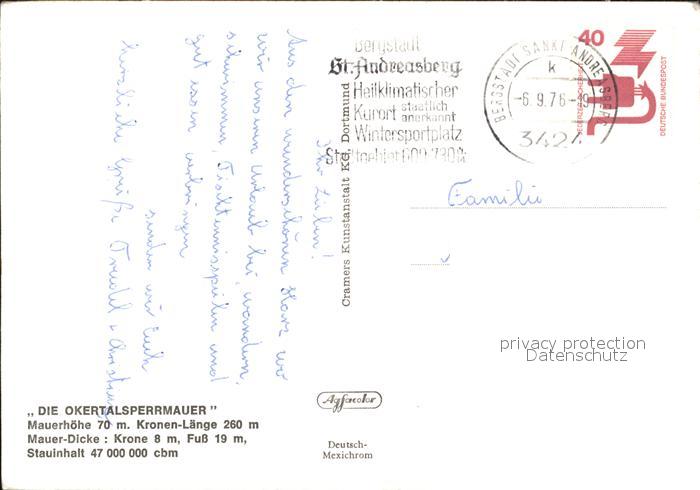 Ihr Lieben!
Aus dem wunderschönen Harz wo
wir unsern Urlaub bei wandern,
schwimmen, Tischtennisspielen und
gut essen verbringen
senden wir Euch
herzliche Grüße Traudel +
Bergstadt
St. Andreasberg
Heilklimatischer
Kurort staatlich anerkannt
Wintersportplatz
Skigebiet 600-730 m
BERGSTADT SANKT ANDREASBERG
k
-6.9.76-19
3424
40
JEDERZEIT SICHERHEIT
DEUTSCHE BUNDESPOST
Familie
Cramers Kunstanstalt KG, Dortmund
privacy protection
Datenschutz
„DIE OKERTALSPERRMAUER"
Mauerhöhe 70 m. Kronen-Länge 260 m
Mauer-Dicke : Krone 8 m, Fuß 19 m,
Stauinhalt 47 000 000 cbm
Agfacolor
Deutsch-
Mexichrom